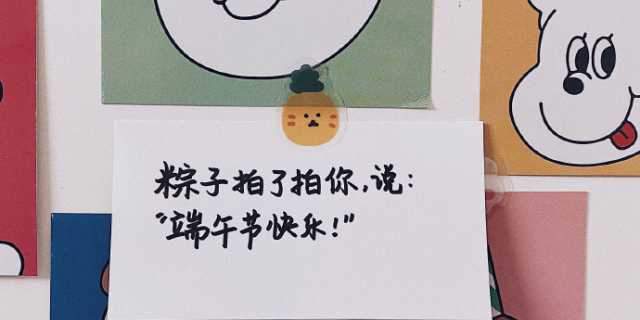 粽子拍了拍你,说:
“端午节快乐!”